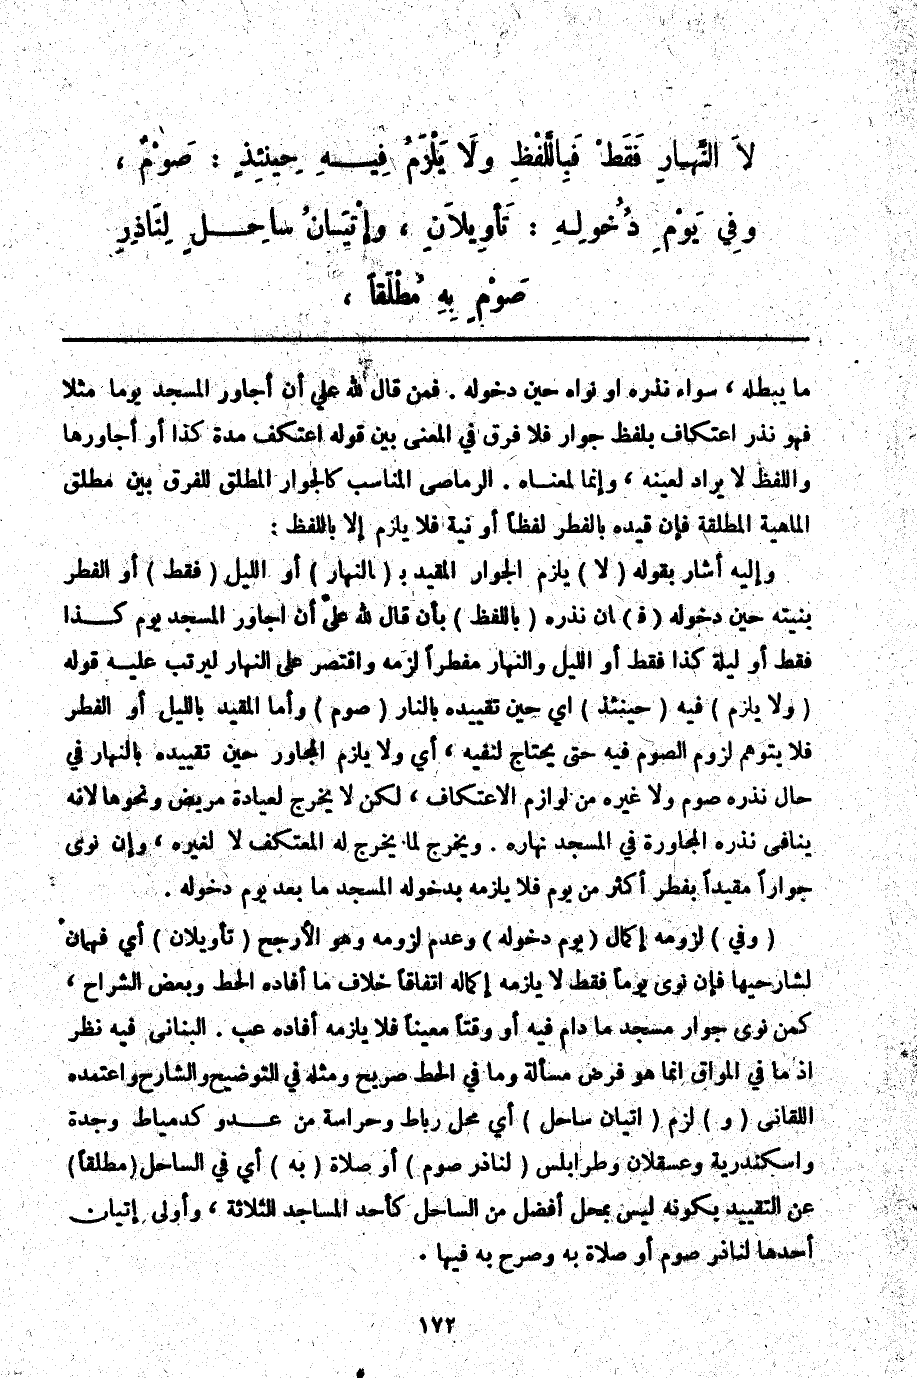 لاَ النَّهارِ فَقَطْ فَبِاللَّفْظِ ولَا يَلْزَمُ فِيهِ حِينَئِذٍ : صَوْمٌ ،
وفِي يَوْمِ دُخُولِهِ : تَأوِيلاَنِ ، وإتْيَانُ ساحِلٍ لِنَاذِرِ
صَوْمٍ بِهِ مُطْلَقاً ،
ما يبطله ، سواء نذره او نواه حين دخوله . فمن قال لله علي أن أجاور المسجد يوما مثلا
فهو نذر اعتكاف بلفظ جوار فلا فرق في المعنى بين قوله اعتكف مدة كذا أو أجاورها
واللفظ لا يراد لعينه ، وإنما لمعناه . الرماصى المناسب كالجوار المطلق للفرق بين مطلق
الماهية المطلقة فإن قيده بالفطر لفظاً أو نية فلا يلزم إلا باللفظ :
وإليه أشار بقوله ( لا ) يلزم الجوار المقيد بـ ( النهار ) أو الليل ( فقط ) أو الفطر
بنيته حين دخوله ( فـ ) ان نذره ( باللفظ ) بأن قال لله علي أن اجاور المسجد يوم كذا
فقط أو ليلة كذا فقط أو الليل والنهار مفطراً لزمه واقتصر على النهار ليرتب عليه قوله
( ولا يلزم ) فيه ( حينئذ ) اي حين تقييده بالنار ( صوم ) وأما المقيد بالليل أو الفطر
فلا يتوهم لزوم الصوم فيه حتى يحتاج لنفيه ، أي ولا يلزم المجاور حين تقييده بالنهار في
حال نذره صوم ولا غيره من لوازم الاعتكاف ، لكن لا يخرج لعيادة مريض ونحوها لانه
ينافى نذره المجاورة في المسجد نهاره . ويخرج لما يخرج له المعتكف لا لغيره ، وإن نوى
جواراً مقيداً بفطر أكثر من يوم فلا يلزمه بدخوله المسجد ما بعد يوم دخوله .
( وفي ) لزومه إكمال ( يوم دخوله ) وعدم لزومه وهو الأرجح ( تأويلان ) أي فهمان
لشارحيها فإن نوى يوماً فقط لا يلزمه إكماله اتفاقاً خلاف ما أفاده الحط وبعض الشراح ،
كمن نوى جوار مسجد ما دام فيه أو وقتاً معيناً فلا يلزمه أفاده عب . البنانى فيه نظر
اذ ما في المواق انما هو فرض مسألة وما في الحط صريح ومثله في التوضيح والشارح واعتمده
اللقانى ( و ) لزم ( اتيان ساحل ) أي محل رباط وحراسة من عدو كدمياط وجدة
واسكندرية وعسقلان وطرابلس ( لناذر صوم ) أو صلاة ( به ) أي في الساحل (مطلقاً)
عن التقييد بكونه ليس بمحل أفضل من الساحل كأحد المساجد الثلاثة ، وأولى إتيان
أحدها لناذر صوم أو صلاة به وصرح به فيها .
١٧٢